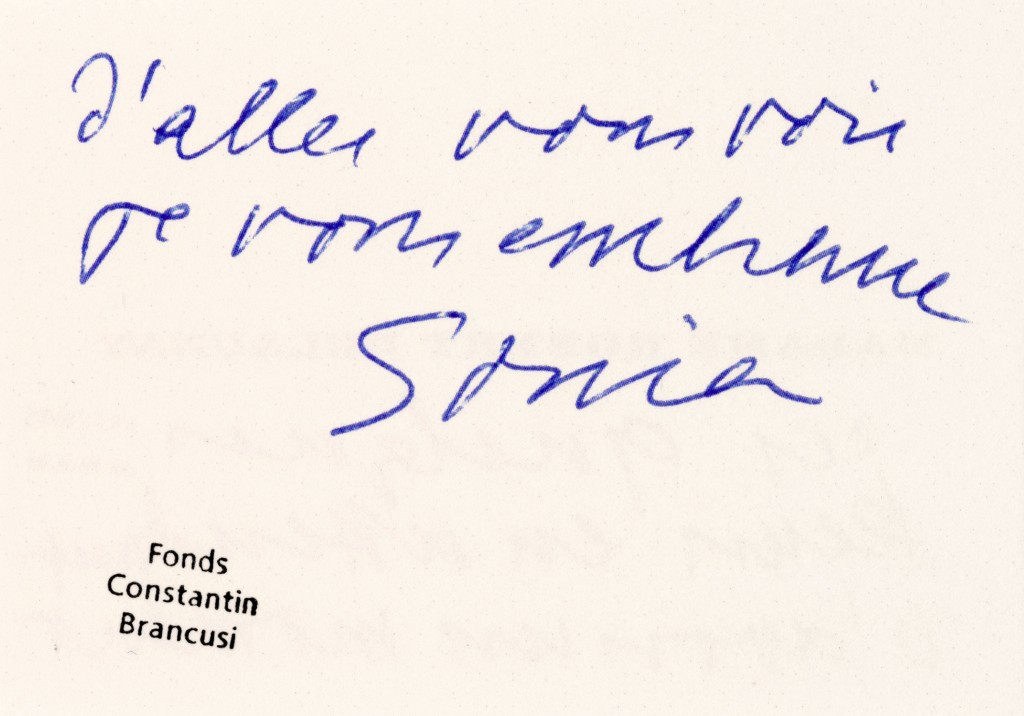 d'aller vous voir
je vous embrasse
Sonia
Fonds
Constantin
Brancusi